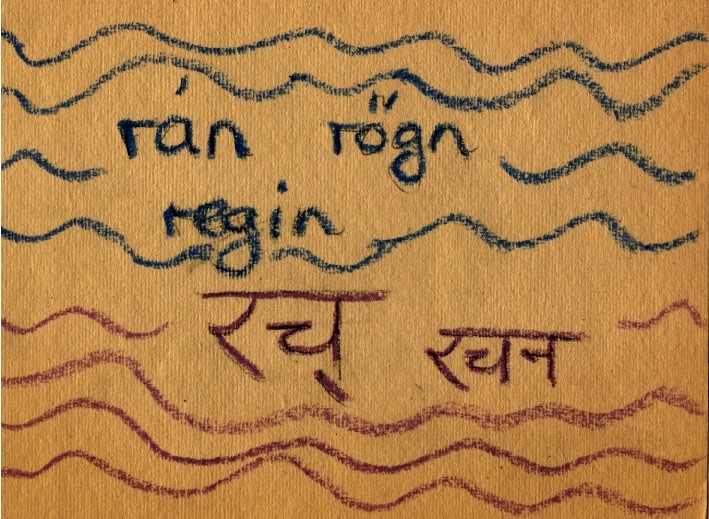 rán rögn
regin
रच् रचन